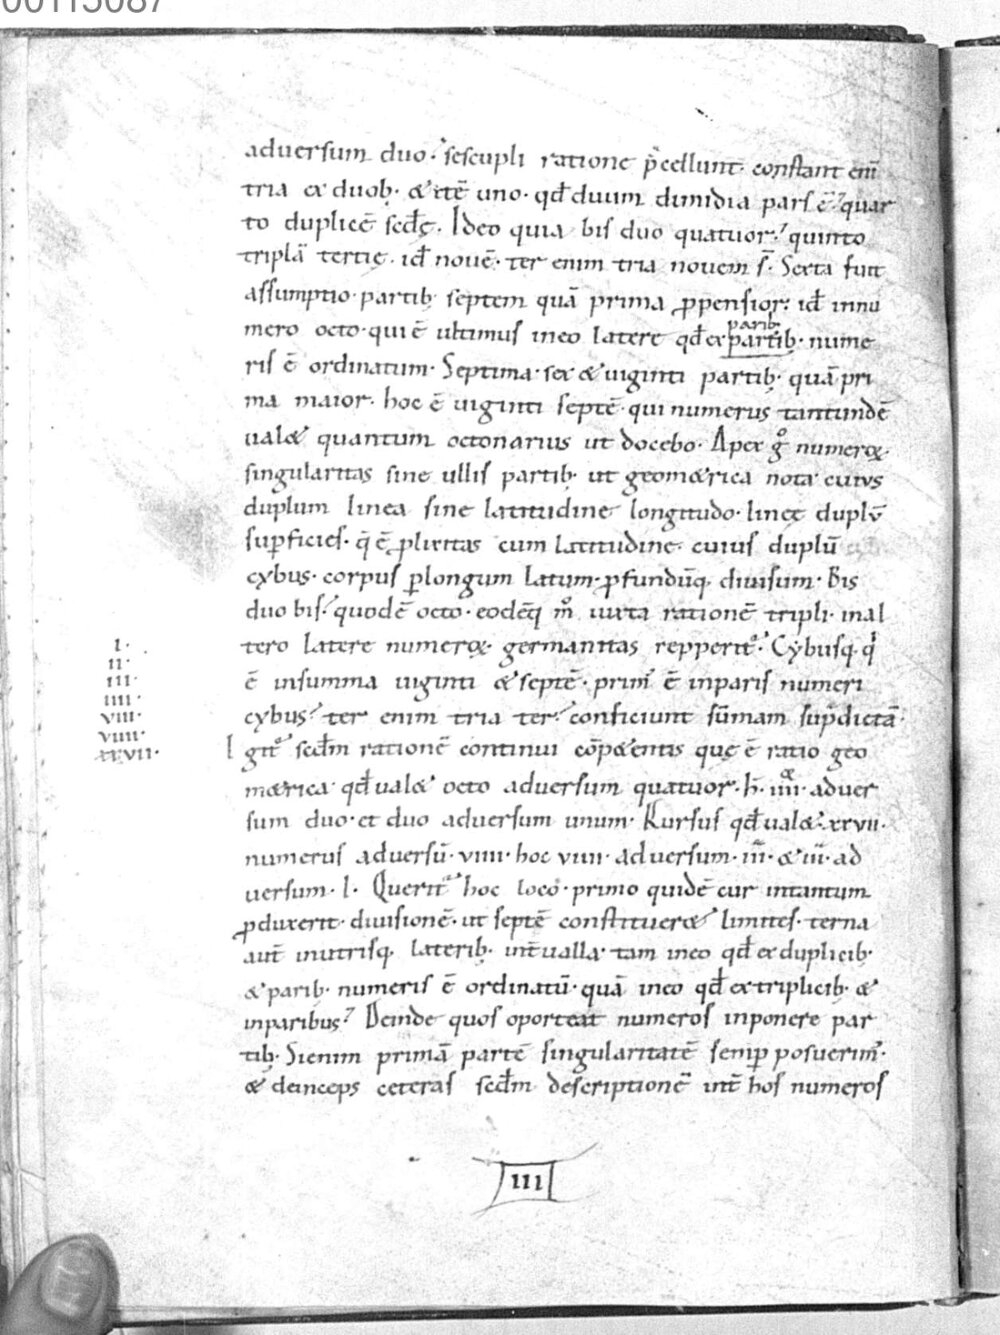 00115087
aduersum duo·' sescupli ratione p̄cellunt· constant eni̅
tria ex duob· & ite̅ uno· qd̅ duum dimidia pars e̅·' quar
to duplice̅ scd̅ę· Ideo quia bis duo quatuor·' quinto
tripla̅ tertię· id̅ noue̅· ter enim tria nouem s̅· Sexta fuit
assumptio· partib; septem qua̅ prima ꝓpensior: id̅ innu
mero octo· qui e̅ ultimus ineo latere qd̅ ex partib;· nume
parib;
ris e̅ ordinatum· Septima· sex & uiginti partib;· qua̅ pri
ma maior· hoc e̅ uiginti septe̅· qui numerus tantunde̅
ual& quantum octonarius ut docebo· Apex gͦ numeroꝝ·
singularitas sine ullis partib;· ut geom&rica nota· cuius
duplum linea sine latitudine longitudo· lineę duplu̅
suꝑficies· q̄ e̅ ꝓlixitas cum latitudine· cuius duplu̅
cybus· corpus ꝑlongum latum· ꝓfundu̅q;· diuisum· Bis
duo bis·' quode̅ octo· eode̅q; mͦ iuxta ratione̅ tripli· inal
tero latere numeroꝝ· germanitas repperit᷑·' Cybusq;· qͥ
e̅ insumma uiginti & septe̅· prim᷒ e̅ inparis numeri
cybus·' ter enim tria ter·' conficiunt su̅mam sup̄dicta̅·
Igit᷑ scd̅m ratione̅ continui co̅p&entis quę e̅ ratio geo
m&rica· qd̅ ual& octo aduersum quatuor· h̅· iiii· aduer
&
sum duo· et duo aduersum unum· Rursus qd̅ ual&· xxvii·
numerus aduersu̅· viiii· hoc viiii· aduersum· iii· & iii· ad
uersum· I· Querit᷑ hoc loco· primo quide̅ cur intantum
ꝓduxerit· diuisione̅· ut septe̅ constituer& limites· terna
aut̅ inutrisq;· laterib;· int̅ualla· tam ineo qd̅ ex duplicib;·
& parib;· numeris e̅ ordinatu̅· qua̅ ineo qd̅ ex triplicib;· &
inparibus·' Deinde quos oporteat numeros inponere par
tib;· Si enim prima̅ parte̅ singularitate̅ semꝑ posuerim᷒·
& deinceps ceteras scd̅m descriptione̅ int̅ hos numeros
I·
II·
III·
IIII·
VIII·
VIIII·
XXVII·
III